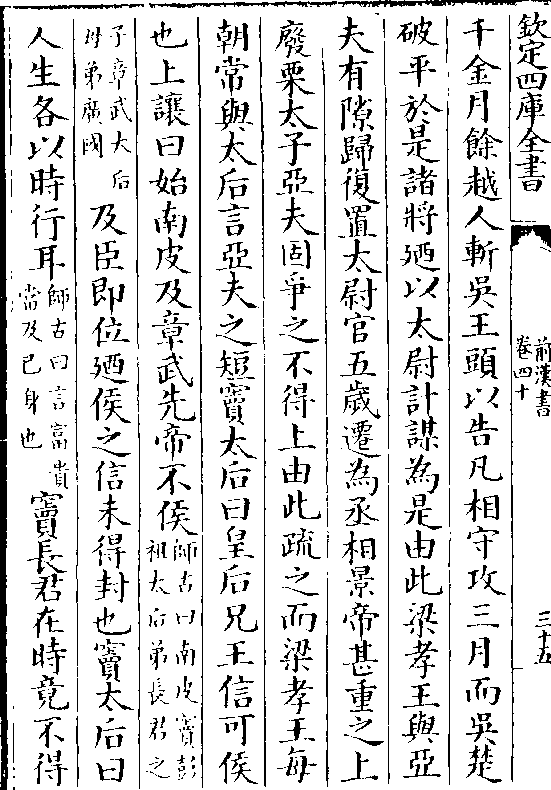 欽定四庫全書
前漢書
卷四十
三十五
千金月餘越人斬吳王頭以告凡相守攻三月而吳楚
破平於是諸將廼以太尉計謀為是由此梁孝王與亞
夫有隙歸復置太尉官五歲遷為丞相景帝甚重之上
廢栗太子亞夫固爭之不得上由此疏之而梁孝王每
朝常與太后言亞夫之短竇太后曰皇后兄王信可侯
也上讓曰始南皮及章武先帝不侯師古曰南皮竇彭祖太后弟長君之
子章武太后母弟廣國及臣即位廼侯之信未得封也竇太后曰
人生各以時行耳師古曰言富貴當及己身也竇長君在時竟不得